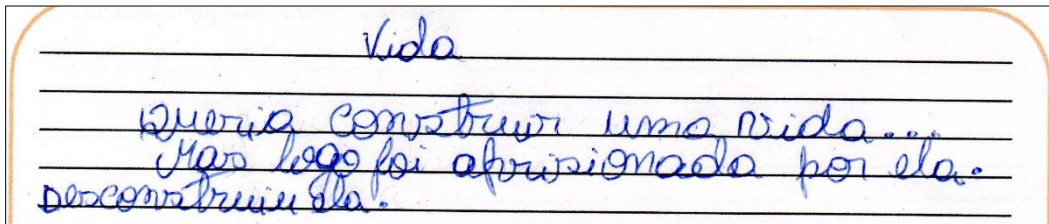 Vida
Queria construir uma vida...
Mas logo foi aprisionada por ela.
Desconstruiu ela.